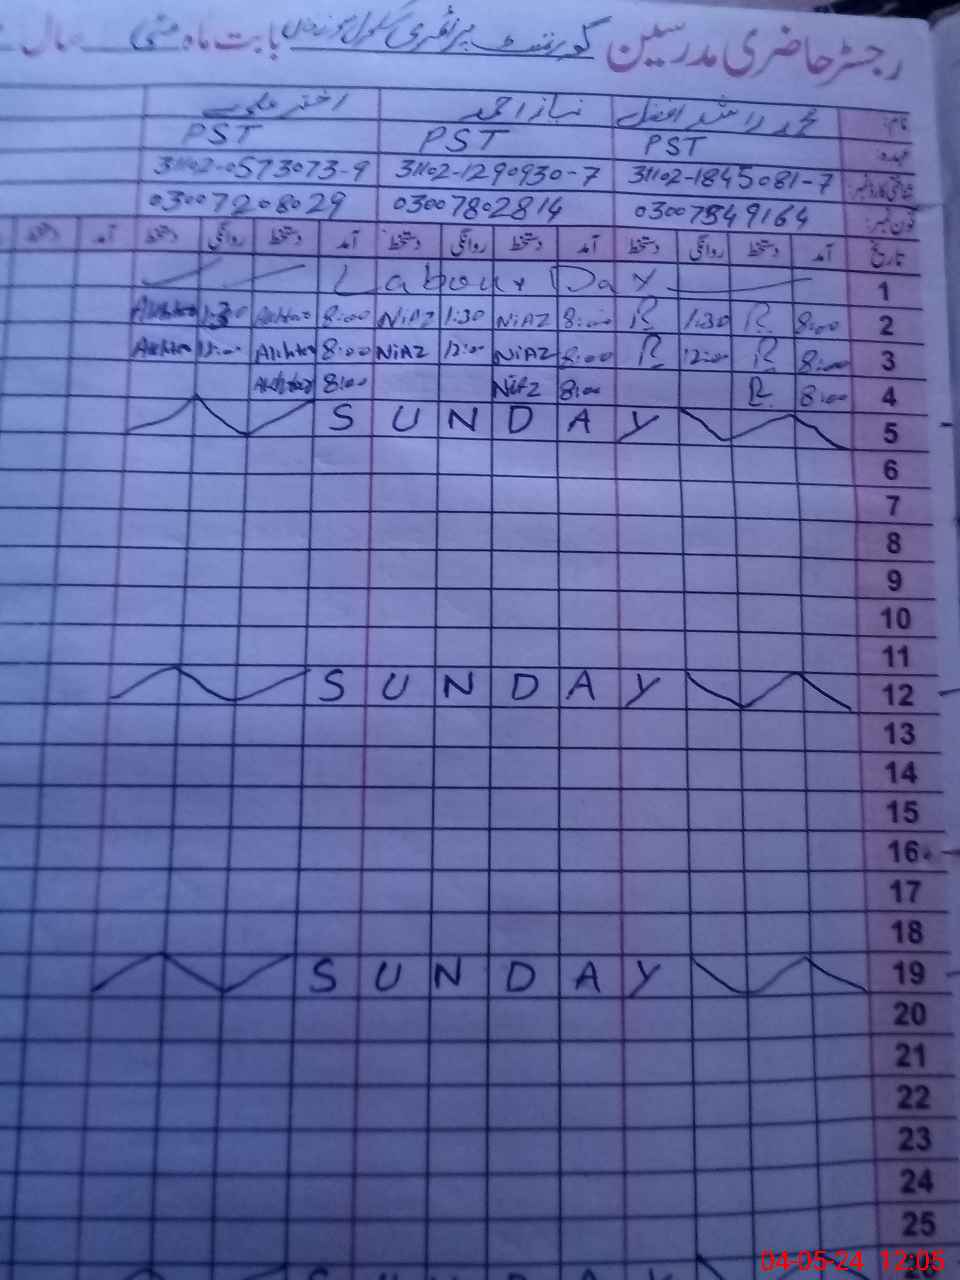 رجسٹر حاضری مدرسین گورنمنٹ پرائمری سکول بابت ماہ مئی سال
نام نیاز احمد اختر
عہدہ PST PST PST
31102-1845081-7 31102-1290930-7 31102-0573073-9
فون نمبر 03007549164 03007802814 03007208029
تاریخ آمد دستخط روانگی دستخط آمد دستخط روانگی دستخط آمد دستخط روانگی دستخط آمد دستخط دستخط
Labour Day 1
Akhtar 1:30 Akhtar 8:00 NiAZ 1:30 NiAZ 8:00 R 1:30 R 8:00 2
Akhtar 12:00 Akhtar 8:00 NiAZ 12:00 NiAZ 8:00 R 12:00 R 8:00 3
Akhtar 8:00 NiAZ 8:00 R 8:00 4
SUNDAY 5
6
7
8
9
10
11
SUNDAY 12
13
14
15
16
17
18
SUNDAY 19
20
21
22
23
24
25
SUNDAY
04-05-24 12:05